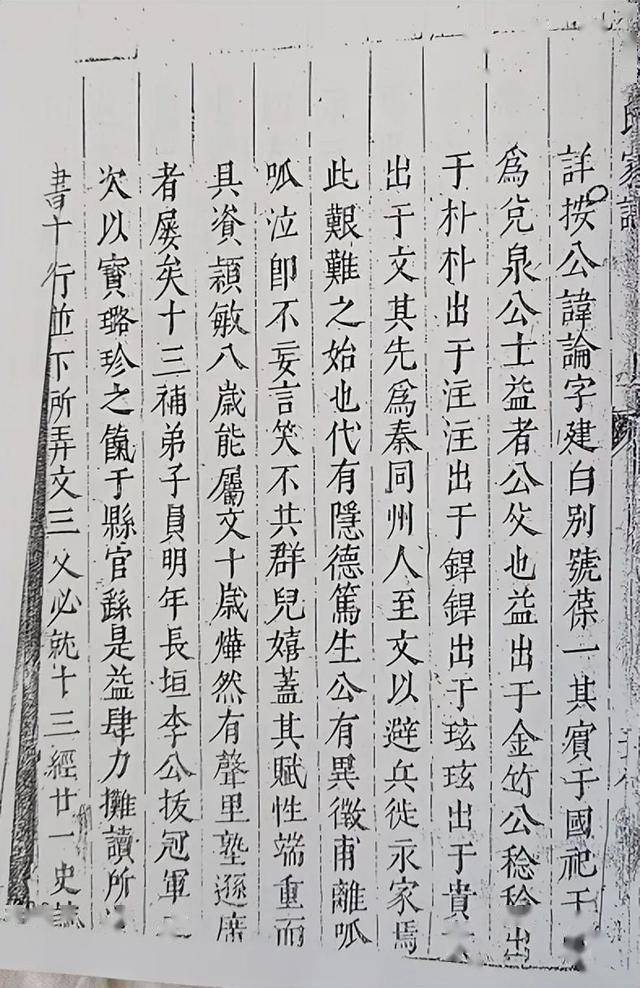 氏家譜
詳按公諱論字建白別號葆一其賓于國祀于
爲兊泉公士益者公父也益出于金竹公稔稔出
于朴朴出于汪汪出于銲銲出于玹玹出于貴
出于文其先爲秦同州人至文以避兵徙永家焉
此艱難之始也代有隱德篤生公有異徵甫離呱
呱泣卽不妄言笑不共群兒嬉蓋其賦性端重而
具資穎敏八歲能屬文十歲燁然有聲里塾遜席
者屡矣十三補弟子員明年長垣李公拔冠軍
次以寶璐珍之餼于縣官繇是益肆力攤讀所
書十行並下所弄文三父必就十三經廿一史